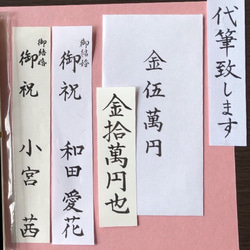 代筆致します
金伍萬円
金拾萬円也
御結婚
御祝
和田愛花
御結婚
御祝
小宮茜